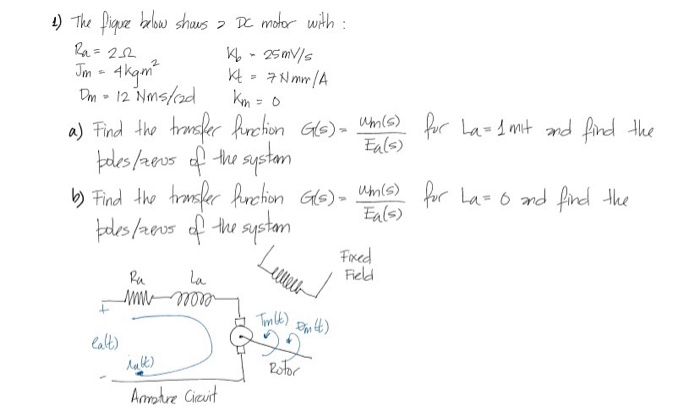 1) The figure below shows a DC motor with :
Ra = 2Ω Kb = 25mV/s
Jm = 4kgm² Kt = 7Nmm/A
Dm = 12 Nms/rad Km = 0
a) Find the transfer function G(s) = ωm(s)/Ea(s) for La = 1mH and find the
poles/zeros of the system
b) Find the transfer function G(s) = ωm(s)/Ea(s) for La = 0 and find the
poles/zeros of the system
Fixed
Field
Ra La
+
Tm(t)
ea(t)
ia(t)
Rotor
-
Armature Circuit